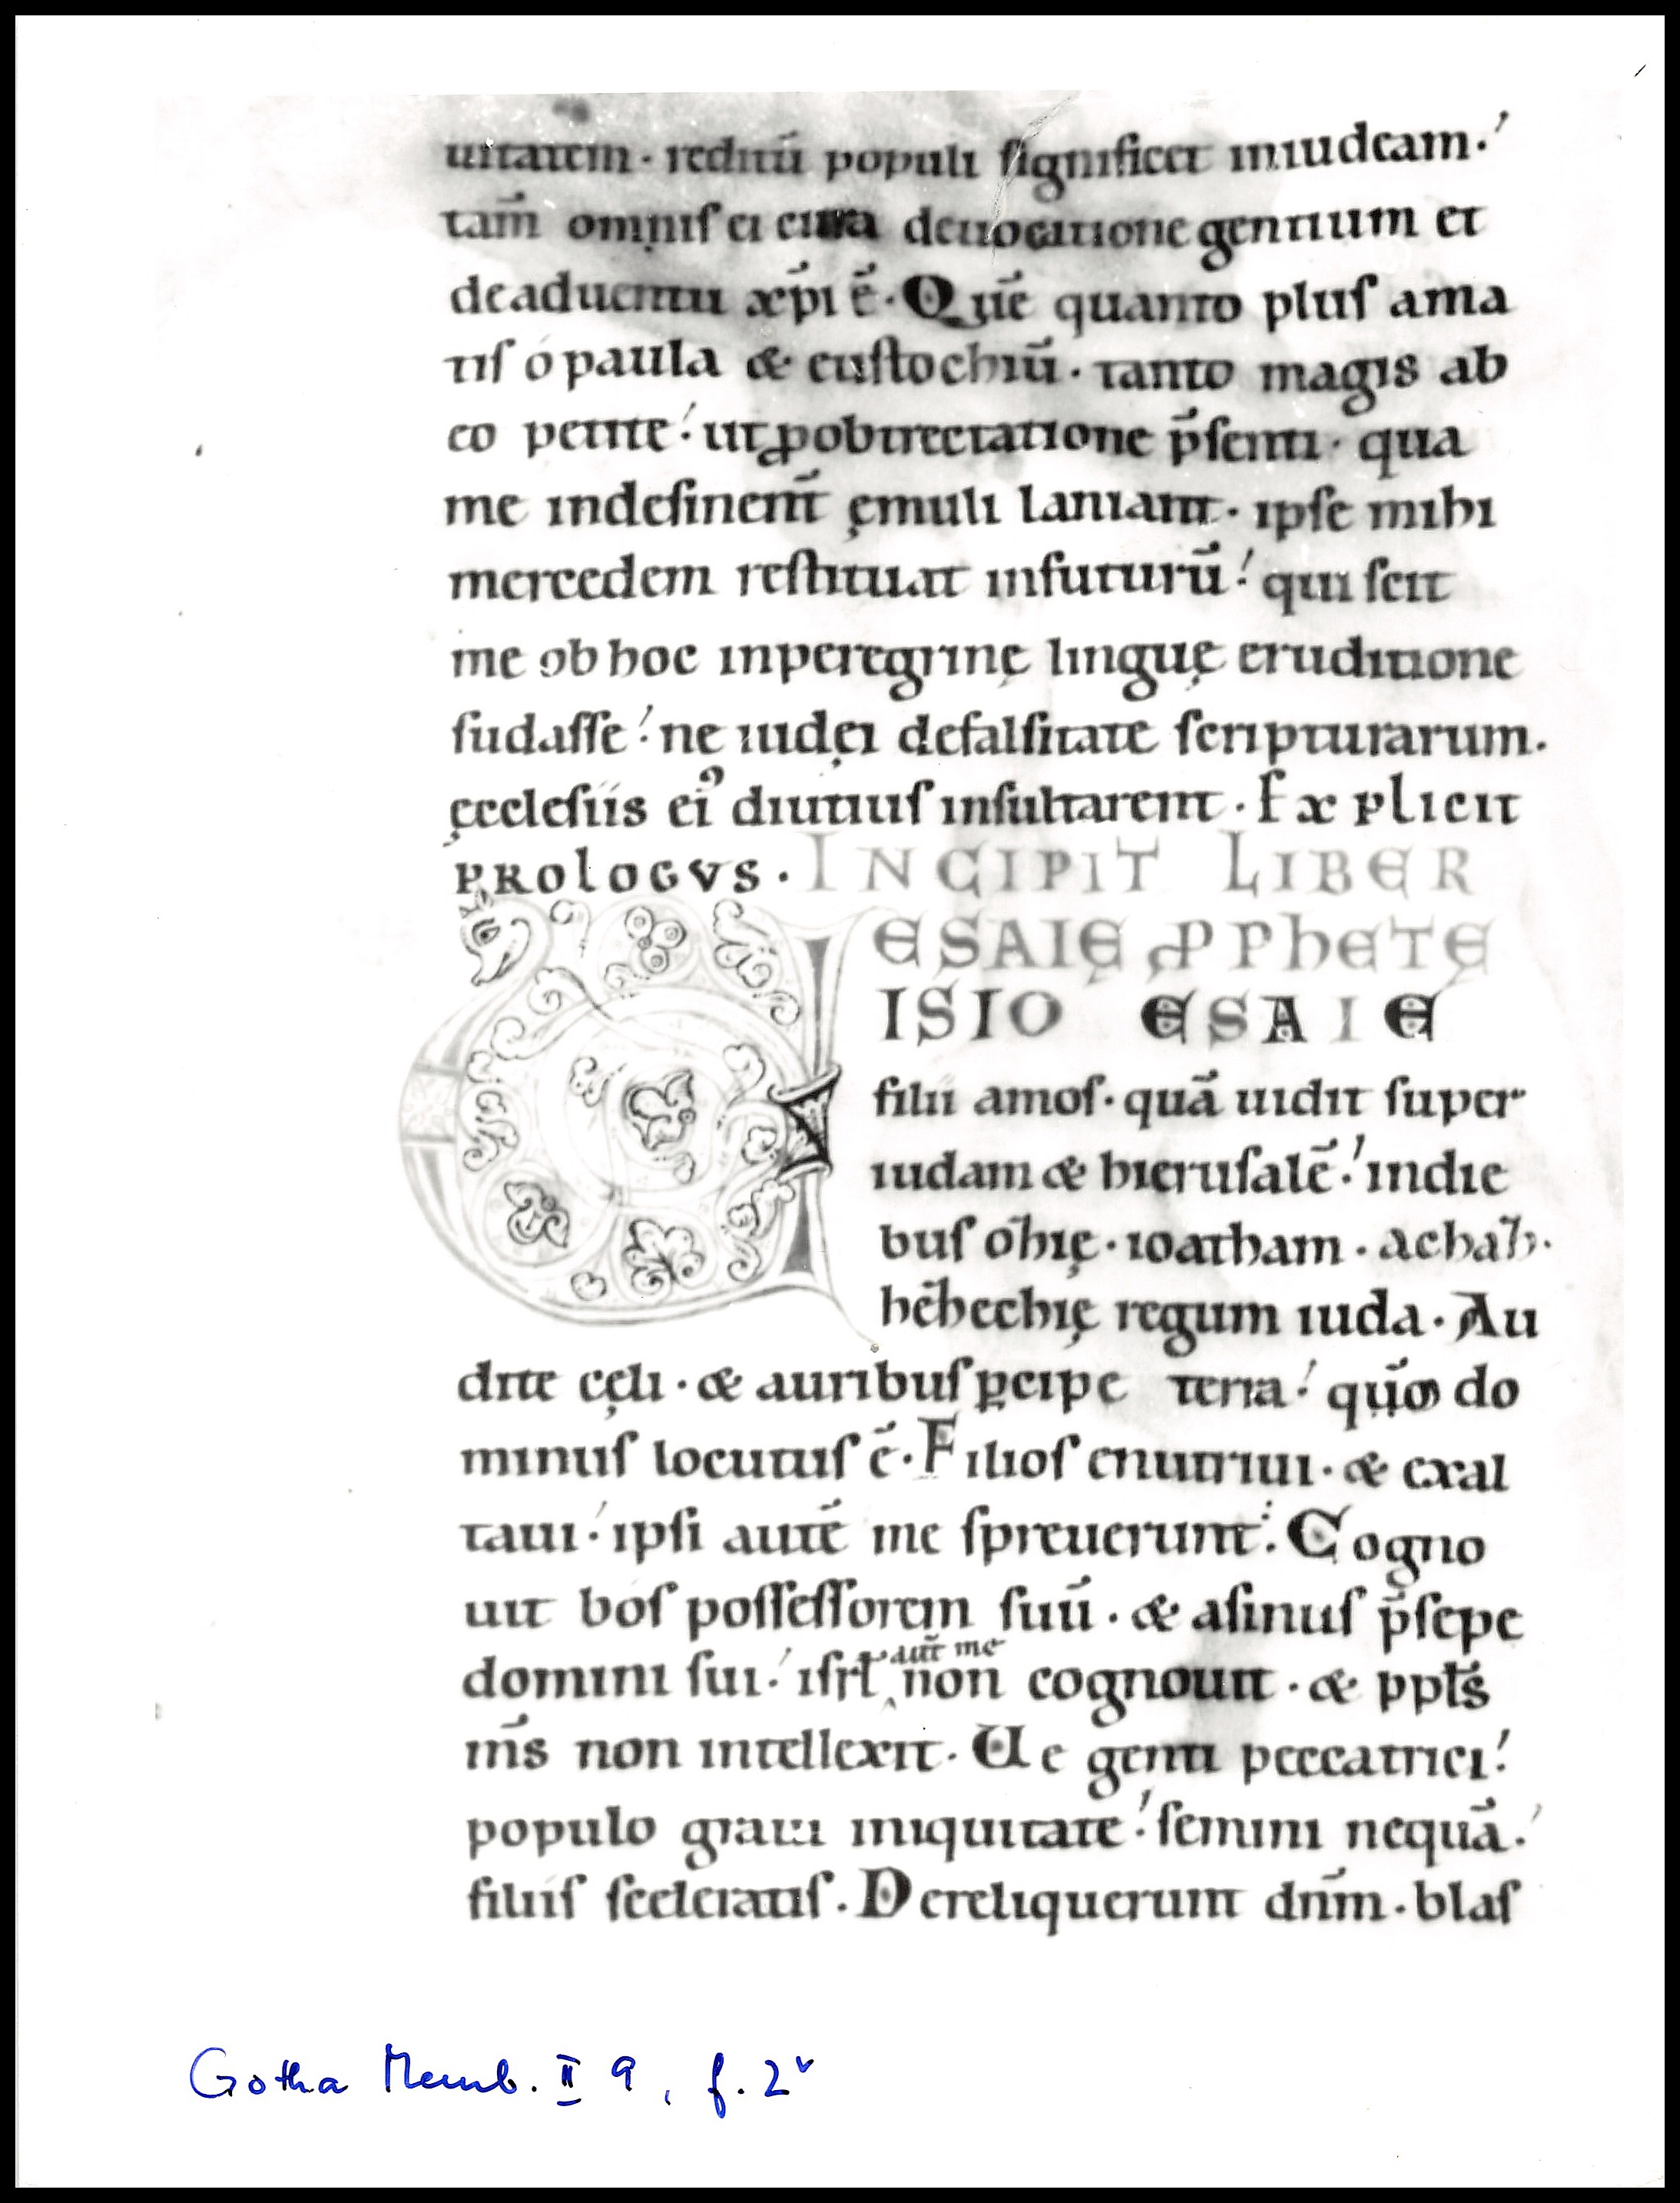 uitatem · reditū populi ſignificet iniudeam ·'
tam̄ omnıſ ei cura deuocatione gentium et
deaduentu xp̄i ē · Quē quanto pluſ ama
tiſ o paula & euſtochiū · tanto magis ab
eo petite ·' ut ꝓobtrectatione p̄ſenti · qua
me indeſinent̄ ęmuli laniant · ipſe mihi
mercedem reſtituat infuturū ·' qui ſcit
me ob hoc inperegrinę linguę eruditione
ſudaſſe ·' ne iudęi defalſitate ſcripturarum ·
ęccleſiis ei⁹ diutiuſ inſultarent · Explicit
PROLOGVS · INCIPIT LIBER
ESAIĘ ꝓPhETĘ
VISIO ESAIE
filii amoſ · quā uidit ſuper
iudam & hieruſalē ·' indie
buſ oħię · ioatham · achaħ ·
hēħechię regum iuda · Au
dite cęli · & auribuſ ꝑcipe terra ·' quō do
minuſ locutuſ ē · Filioſ enutriui · & exal
taui ·' ipſi autē me ſpreuerunt · Cogno
uit boſ poſſeſſorem ſuū · & aſinuſ p̄ſepe
aut̄ me
domini ſui ·' iſrł non cognouit · & ppłs
m̄s non intellexit · Ue genti peccatrici ·'
populo graui iniquitate ·' ſemini nequā ·'
filiiſ ſceleratiſ · Dereliquerunt dnm̄ · blaſ
Gotha Memb. II 9, f. 2v